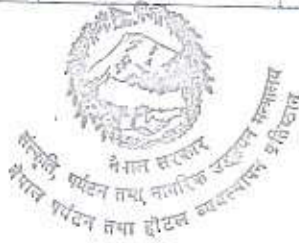 नेपाल सरकार
संस्कृति, पर्यटन तथा नागरिक उड्डयन मन्त्रालय
नेपाल पर्यटन तथा होटल व्यवस्थापन प्रतिष्ठान